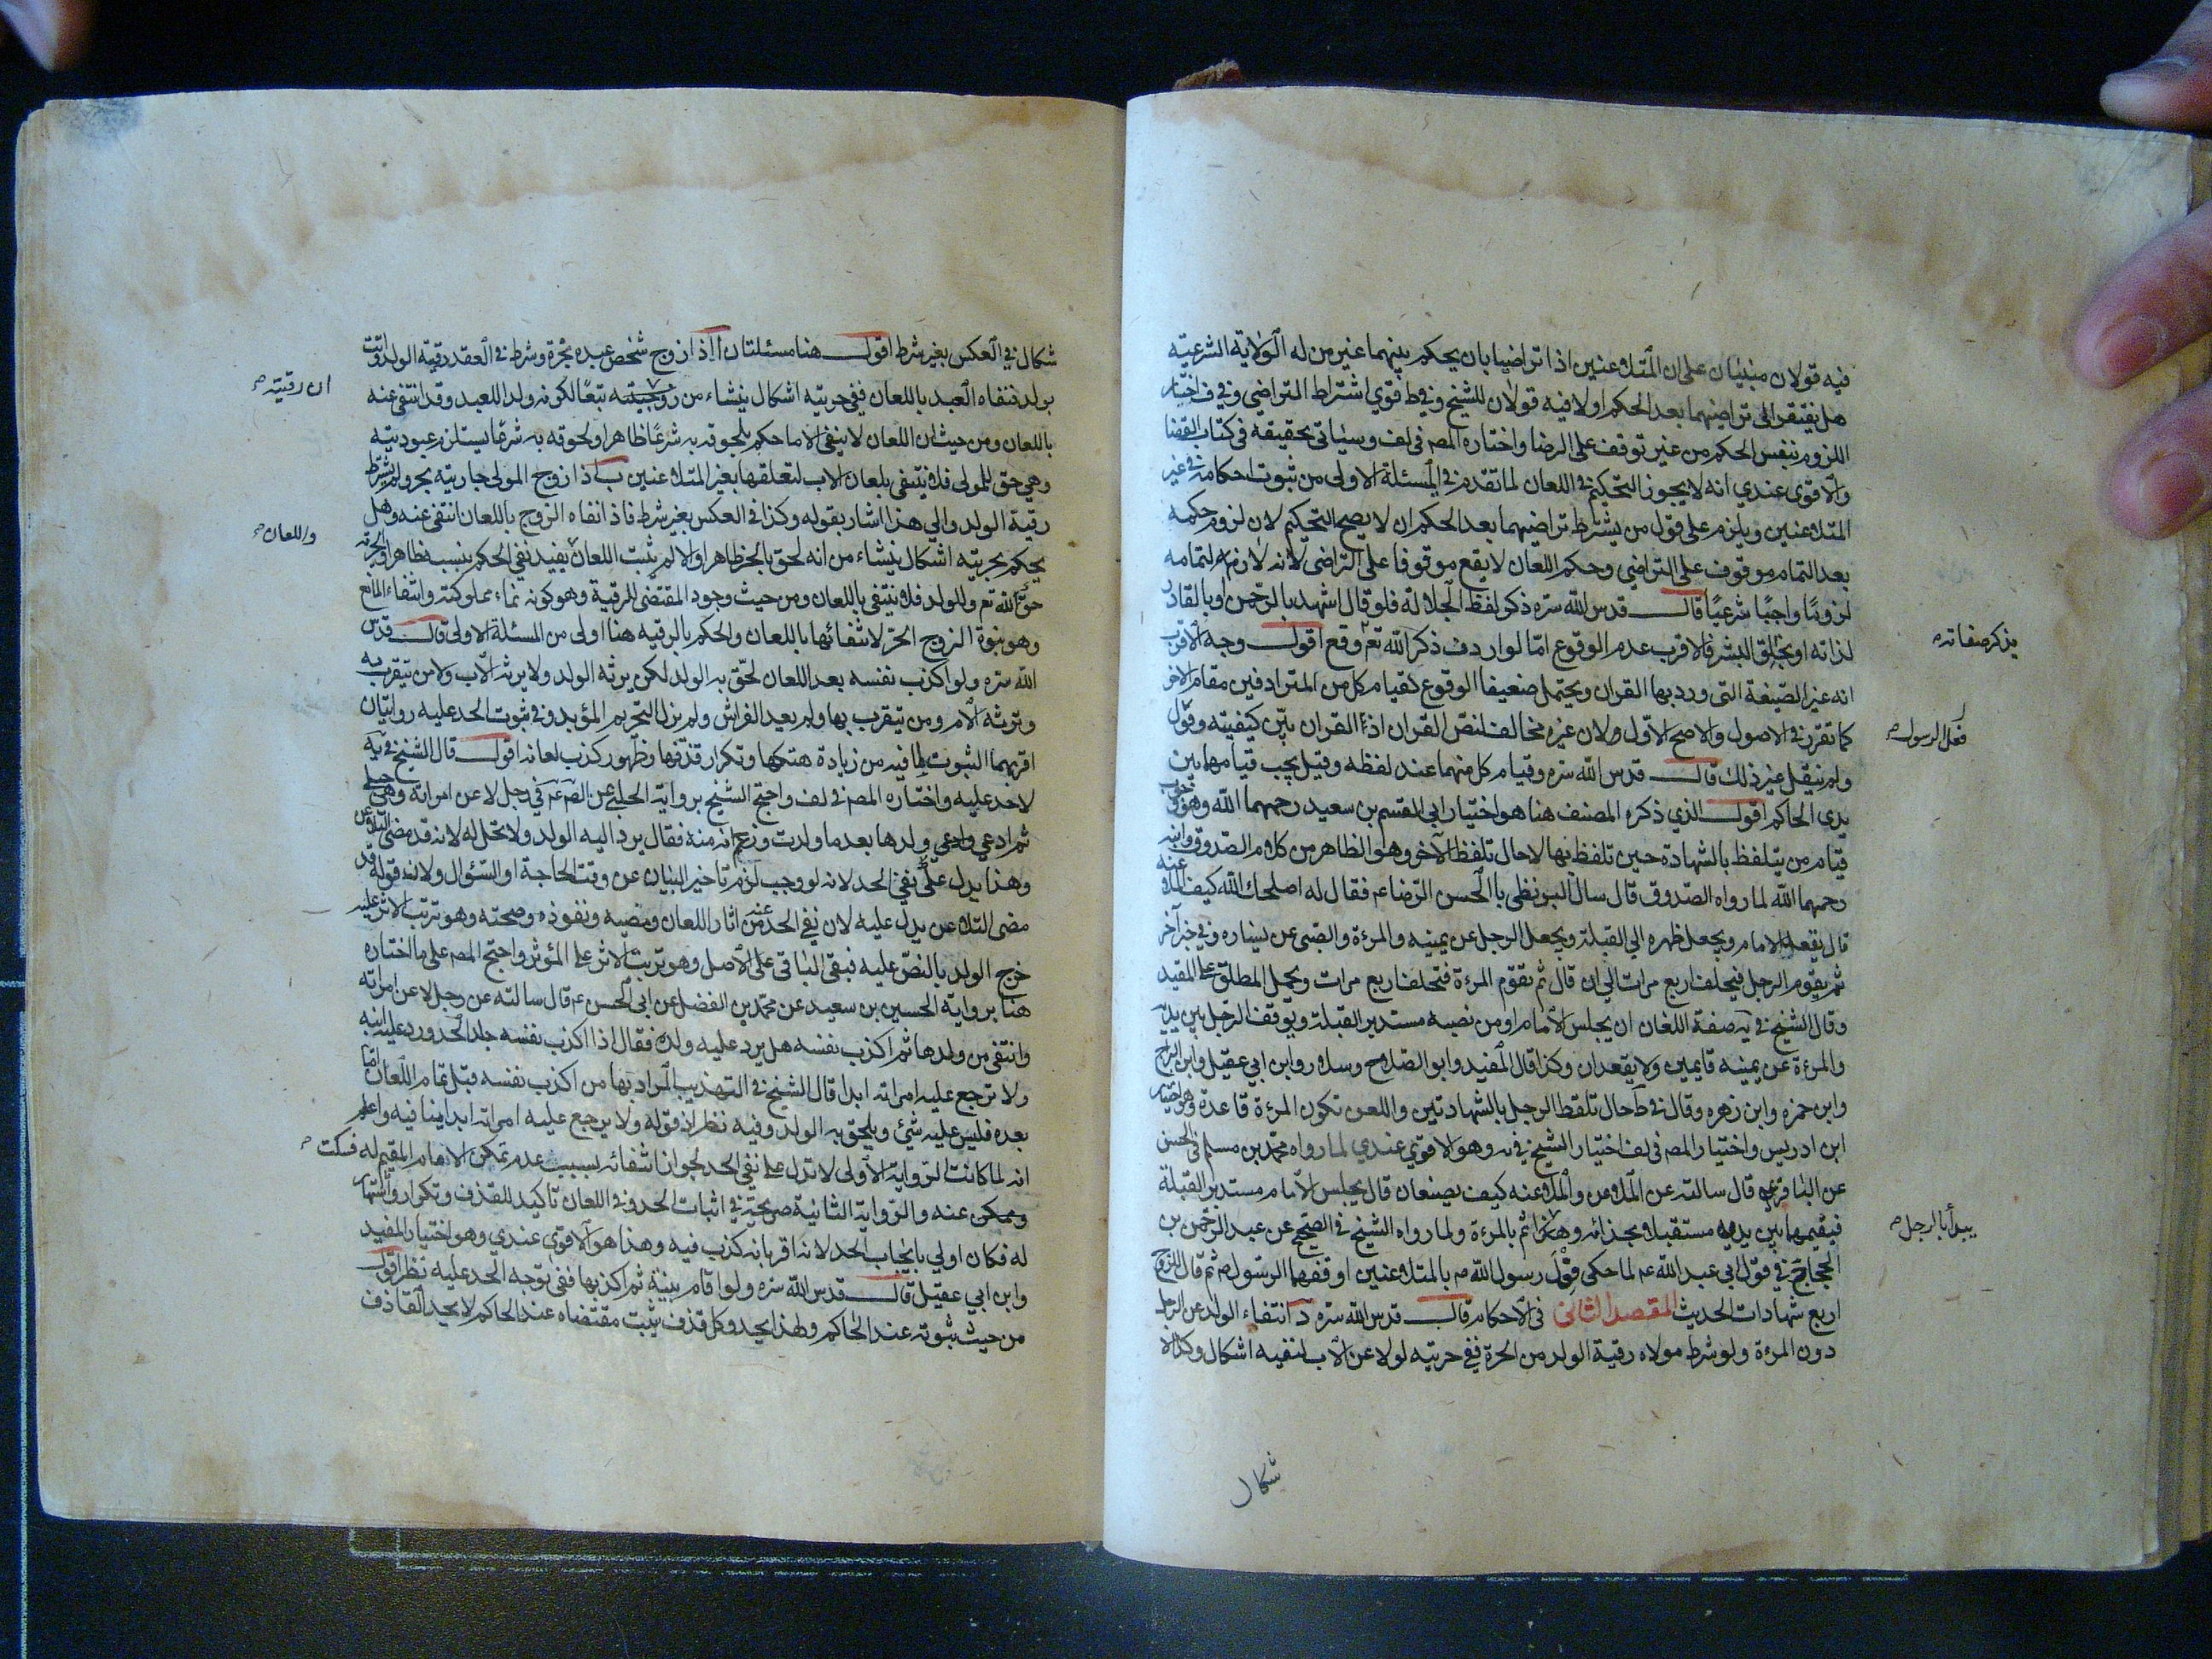 فيه قولان مبنيان على ان المتلاعنين اذا تراضيا بان يحكم بينهما غير من له الولاية الشرعية
هل يفتقر الى تراضيهما بعد الحكم او لا فيه قولان للشيخ وفي ط قوي اشتراط التراضي وفي ف اختار
اللزوم بنفس الحكم من غير توقف على الرضا واختاره المص في لف وسياتي تحقيقه في كتاب القضا
والاقوى عندي انه لا يجوز التحكيم في اللعان لما تقدم في المسئلة الاولى من ثبوت احكامه في غير
المتلاعنين ويلزم على قول من يشترط تراضيهما بعد الحكم ان لا يصح التحكيم لان لزوم حكمه
بعد التمام موقوف على التراضي وحكم اللعان لا يقع موقوفا على التراضي لانه لازم لتمامه
لزوما واجبا شرعيا قال قدس الله سره ذكر لفظ الجلالة فلو قال اشهد بالرحمن وبالقادر
لذاته او بخالق البشر فالاقرب عدم الوقوع امّا لو اردف ذكر الله تع وقع اقول وجه الاقرب
يذكر صفاته
انه غير الصيغة التي ورد بها القران ويحتمل ضعيفا الوقوع لقيام كل من المترادفين مقام الاخر
كما تقرر في الاصول والاصح الاول ولان غيره مخالف لنص القران اذ القران بيّن كيفيته وقول
فعل الرسول
ولم ينقل غير ذلك قال قدس الله سره وقيام كل منهما عند لفظه وقيل يجب قيامهما بين
يدى الحاكم اقول الذي ذكره المصنف هنا هو اختيار ابي القسم بن سعيد رحمهما الله وهو وجوب
قيام من يتلفظ بالشهادة حين تلفظ بها لا حال تلفظ الآخر وهو الظاهر من كلام الصدوق وابيه
رحمهما الله لما رواه الصدوق قال سال البزنطى با الحسن الرضا عم فقال له اصلحك الله كيف الملاعنه
قال يقعد الامام ويجعل ظهره الي القبلة ويجعل الرجل عن يمينه والمرءة والصبى عن يساره وفي خبر آخر
ثم يقوم الرجل فيحلف اربع مرات الي ان قال ثم تقوم المرءة فتحلف اربع مرات ويحمل المطلق على المقيد
وقال الشيخ في يه صفة اللعان ان يجلس الامام او من نصبه مستدبر القبلة ويوقف الرجل بين يديه
والمرءة عن يمينه قايمين ولا يقعدان وكذا قال المفيد وابو الصلاح وسلار وابن ابي عقيل وابن البراج
وابن حمزه وابن زهره وقال في ط حال تلفظ الرجل بالشهادتين واللعن تكون المرءة قاعدة وهو اختيار
ابن ادريس واختيار المص في لف اختيار الشيخ في يه وهو الاقوي عندي لما رواه محمد بن مسلم في الحسن
عن الباقر عم قال سالته عن الملاعن والملاعنه كيف يصنعان قال يجلس الامام مستدبر القبلة
فيقيمهما بين يديه مستقبلا بحذائه وهكذا ثم بالمرءة ولما رواه الشيخ في الصحيح عن عبد الرحمن بن
يبدأ بالرجل
الحجاج في قول ابي عبد الله عم لما حكى فعل رسول الله ص بالمتلاعنين اوقفهما الرسول ص ثم قال للزوج
اربع شهادات الحديث المقصد الثاني في الاحكام قال قدس الله سره د انتفاء الولد عن الرجل
دون المرءة ولو شرط مولاه رقية الولد من الحرة ففي حريته لو لاعن الاب لنفيه اشكال وكذا الا
شكال
شكال في العكس بغير شرط اقول هنا مسئلتان ا اذا زوج شخص عبده بحرة وشرط في العقد رقية الولد واتت
بولد فنفاه العبد باللعان ففي حريته اشكال ينشاء من رقيته تبعا لكونه ولد اللعبد وقد انتفى عنه
ان رقيته
باللعان ومن حيث ان اللعان لا ينفى الا ما حكم بلحوقه به شرعا ظاهرا ولحوقه به شرعا يستلزم عبوديته
وهي حق للمولى فلا ينتفى بلعان الاب لتعلقها بغير المتلاعنين ب اذا زوج المولى جاريته بحر ولم يشترط
رقية الولد والي هذا اشار بقوله وكذا في العكس بغير شرط فاذا نفاه الزوج باللعان انتفى عنه وهل
يحكم بحريته اشكال ينشاء من انه لحق بالحر ظاهرا والا لم يثبت اللعان يفيد نفي الحكم بنسبه ظاهرا والحرية
واللعان
حق الله تع وللولد فلا ينتفي باللعان ومن حيث وجود المقتضى للرقية وهو كونه نماء مملوكته وانتفاء المانع
وهو بنوة الزوج الحر لانتفائها باللعان والحكم بالرقيه هنا اولى من المسئلة الاولى قال قدس
الله سره ولو اكذب نفسه بعد اللعان لحق به الولد لكن يرثه الولد ولا يرثه الاب ولا من يتقرب به
وترثه الام ومن يتقرب بها ولم يعد الفراش ولم يزل التحريم المؤبد وفي ثبوت الحد عليه روايتان
اقربهما الثبوت لما فيه من زيادة هتكها وتكرار قذفها وظهور كذب لعانه اقول قال الشيخ في يه
لا حد عليه واختاره المص في لف واحتج الشيخ برواية الحلبي عن الص عم في رجل لاعن امراته وهي حبلي
ثم ادعي ولدها بعد ما ولدت وزعم انه منه فقال يرد اليه الولد ولا تحل له لانه قد مضى التلاعن
وهذا يدل على نفي الحد لانه لو وجب لزم تاخير البيان عن وقت الحاجة او السؤال ولانه قوله قد
مضى التلاعن يدل عليه لان نفي الحد عنه من اثار اللعان ومضيه ونفوذه وصحته وهو ترتب الاثر عليه
خرج الولد بالنص عليه فبقى الباقى على الاصل وهو ترتب الاثر على المؤثر واحتج المص على ما اختاره
هنا برواية الحسين بن سعيد عن محمد بن الفضل عن ابي الحسن عم قال سالته عن رجل لاعن امراته
وانتفى من ولدها ثم اكذب نفسه هل يرد عليه ولده فقال اذا اكذب نفسه جلد الحد ورد عليه ابنه
ولا ترجع عليه امراته ابدا قال الشيخ في التهذيب المراد بها من اكذب نفسه قبل تمام اللعان امّا
بعده فليس عليه شئ ويلحق به الولد وفيه نظر اذ قوله ولا يرجع عليه امراته ابدا ينافيه واعلم
انه لما كانت الرواية الاولى لا تدل على نفي الحد لجواز انتفائه لسبب عدم تمكن الامام المقيم له فسكت
وممكن عنه والرواية الثانية صريحة في اثبات الحد وفي اللعان تاكيد للقذف وتكرار واشتهار
له فكان اولي بايجاب الحد لانه اقر بانه كذب فيه وهذا هو الاقوى عندي وهو اختيار المفيد
وابن ابي عقيل قال قدس الله سره ولو اقام بينة ثم اكذبها ففي توجه الحد عليه نظر اقول
من حيث ثبوته عند الحاكم ولهذا لا يحد وكل قذف يثبت مقتضاه عند الحاكم لا يحد القاذف